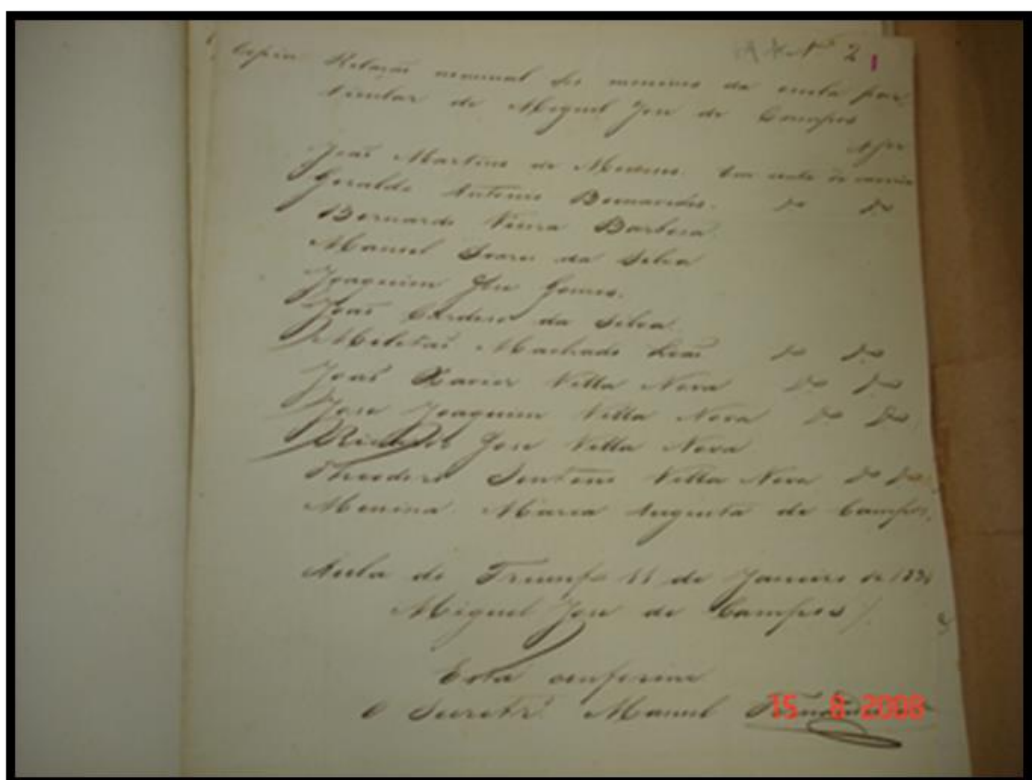 Nº 2
Copia Relação nominal dos meninos da escola par
ticular de Miguel Jose de Campos
João Martins de Menezes.
Geraldo Antonio Do Do
Bernardo Vieira Barbosa
Manoel Soares da Silva
Joaquim Jose Gomes.
João Cordeiro da Silva.
Machado Do Do
João Xavier Villa Nova Do Do
Jose Joaquim Villa Nova Do Do
Jose Villa Nova
Theodoro Villa Nova Do Do
Menina Maria Augusta de Campos.
Aula do Triumfo 11 de Janeiro de
Miguel Jose de Campos
Está conforme
O Secretrº Manoel
15 8 2008